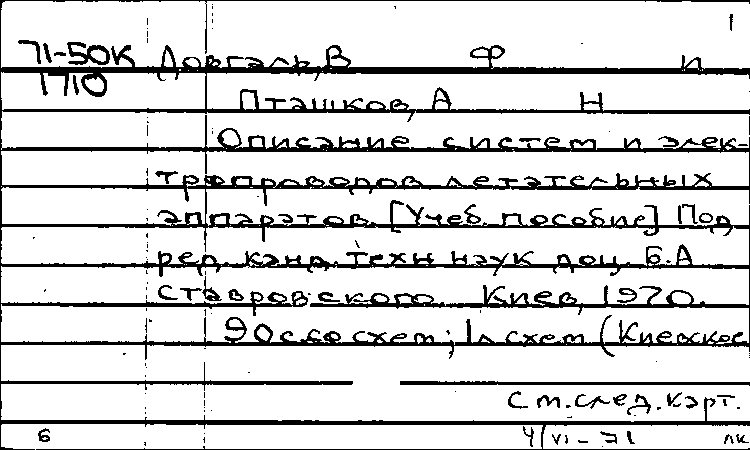 1
71-50К Довгаль, В Ф и
1710
Пташков, А Н
Описание систем и элек-
тропроводов летательных
аппаратов. [Учеб. пособие] Под
ред. канд. техн наук доц. Б.А
Ставровского. Киев, 1970.
90 с. со схем; 1 л схем (Киевское
См. след. карт.
6 4/VI-71 лк